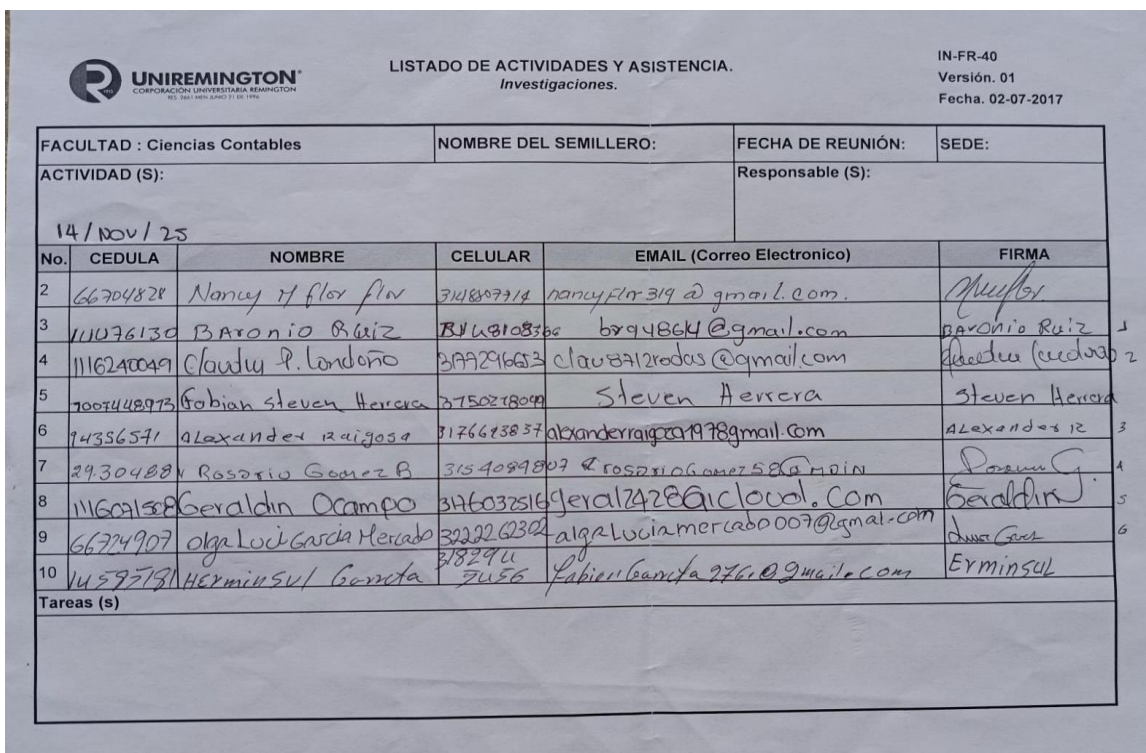 UNIREMINGTON®
CORPORACIÓN UNIVERSITARIA REMINGTON
RES. 2661 MEN JUNIO 21 DE 1996
LISTADO DE ACTIVIDADES Y ASISTENCIA.
Investigaciones.
IN-FR-40
Versión. 01
Fecha. 02-07-2017
FACULTAD : Ciencias Contables NOMBRE DEL SEMILLERO: FECHA DE REUNIÓN: SEDE:
ACTIVIDAD (S): Responsable (S):
14/NOV/25
No. CEDULA NOMBRE CELULAR EMAIL (Correo Electronico) FIRMA
2 66704828 Nancy M flor flor 3148807714 nancyflor319@gmail.com.
3 BAronio Ruiz br948614@gmail.com BAronio Ruiz 1
4 1116240049 Claudia P. Londoño 3177296653 clav8712rodas@gmail.com 2
5 1007448973 Fabian Steven Herrera Steven Herrera Steven Herrera
6 94356571 ALexander Raigosa 3176693837 alexanderraigoza1978gmail.com ALexander R 3
7 29.30488 Rosario Gomez B 3154089807 rosarioGomez58@ 4
8 Geraldin Ocampo 3176032516 geral2428@iclovol.com Geraldin 5
9 66724907 olga Luci Garcia Mercado 3222262302 algaLuciamercado007@gmal.com 6
10 HerminsUl Garcta 318294 5456 @gmail.com ErminsUL
Tareas (s)